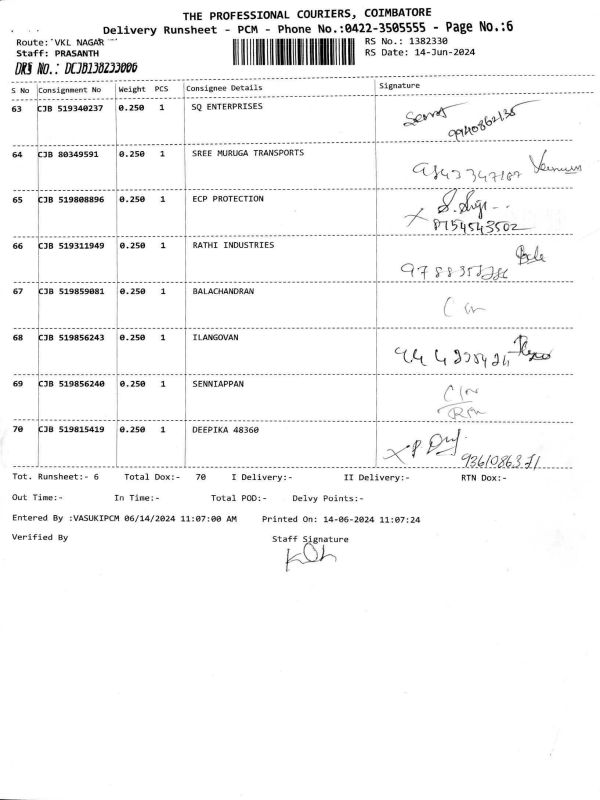 THE PROFESSIONAL COURIERS, COIMBATORE
Delivery Runsheet - PCM - Phone No.:0422-3505555 - Page No.:6
Route: VKL NAGAR
RS No.: 1382330
Staff: PRASANTH
RS Date: 14-Jun-2024
DRS NO.: DCJB138233006
S No Consignment No Weight PCS Consignee Details Signature
63 CJB 519340237 0.250 1 SQ ENTERPRISES
9940862135
64 CJB 80349591 0.250 1 SREE MURUGA TRANSPORTS
9843347187
65 CJB 519808896 0.250 1 ECP PROTECTION
8754543502
66 CJB 519311949 0.250 1 RATHI INDUSTRIES
67 CJB 519859081 0.250 1 BALACHANDRAN
68 CJB 519856243 0.250 1 ILANGOVAN
69 CJB 519856240 0.250 1 SENNIAPPAN
70 CJB 519815419 0.250 1 DEEPIKA 48360
Tot. Runsheet:- 6 Total Dox:- 70 I Delivery:- II Delivery:- RTN Dox:-
Out Time:- In Time:- Total POD:- Delvy Points:-
Entered By :VASUKIPCM 06/14/2024 11:07:00 AM Printed On: 14-06-2024 11:07:24
Verified By Staff Signature